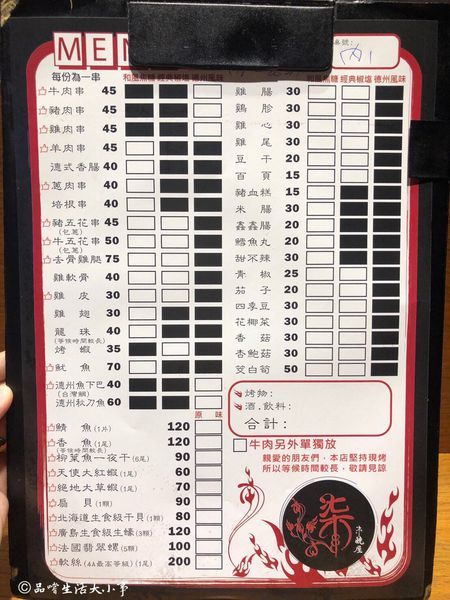 MEN
號:
內1
每份為一串
和風焦糖 經典椒塩 德州風味
牛肉串 45
豬肉串 45
雞肉串 45
羊肉串 45
德式香腸 40
蔥肉串 40
培根串 40
豬五花串 45
(包蔥)
牛五花串 50
(包蔥)
去骨雞腿 75
雞軟骨 40
雞皮 30
雞翅 30
龍珠 40
(等候時間較長)
烤蝦 35
魷魚 70
德州魚下巴 40
(台灣鯛)
德州秋刀魚 60
原味
鯖魚(1片) 120
香魚(1尾) 120
(等候時間較長)
柳葉魚一夜干(6尾) 90
天使大紅蝦(1尾) 60
絶地大草蝦(1尾) 70
扇貝(1顆) 90
北海道生食級干貝(1顆) 80
廣島生食級生蠔(3顆) 120
法國翡翠螺(5顆) 100
軟絲(4A最高等級)(1尾) 200
和風焦糖 經典椒塩 德州風味
雞腸 30
鷄胗 30
雞心 30
雞尾 30
豆干 20
百頁 15
豬血糕 15
米腸 30
鑫鑫腸 20
鱈魚丸 20
甜不辣 30
青椒 20
茄子 20
四季豆 30
花椰菜 30
香菇 30
杏鮑菇 30
筊白筍 50
烤物:
酒.飲料:
合計:
牛肉另外單獨放
親愛的朋友們,本店堅持現烤
所以等候時間較長,敬請見諒
柒
串燒屋
©品嚐生活大小事